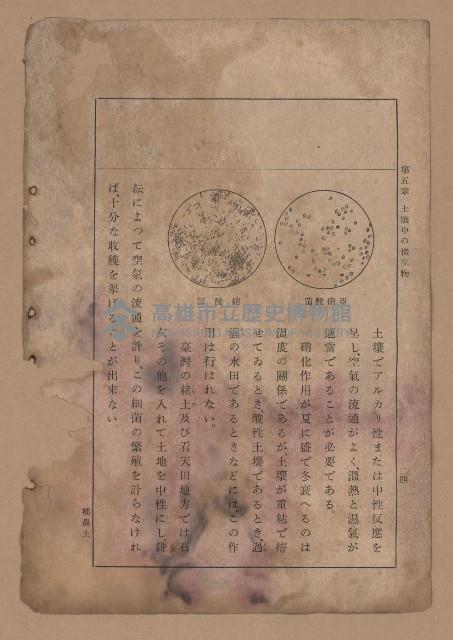 第五章 土壤中の微生物
一四
亞硝酸菌
硝酸菌
土壤でアルカリ性または中性反應を
呈し、空氣の流通がよく、溫熱と濕氣が
適當であることが必要である。
硝化作用が夏に盛で冬衰へるのは
溫度の關係であるが、土壤が重粘で瘠
せてゐるとき、酸性土壤であるとき、過
濕の水田であるときなどには、この作
用は行はれない。
臺灣の粘土及び看天田地方では石
灰その他を入れて土地を中性にし、耕
耘によつて空氣の流通を計り、この細菌の繁殖を計らなけれ
ば、十分な收穫を擧げ ことが出來ない
補農土
高雄市立歷史博物館
KAOHSIUNG MUSEUM OF HISTORY